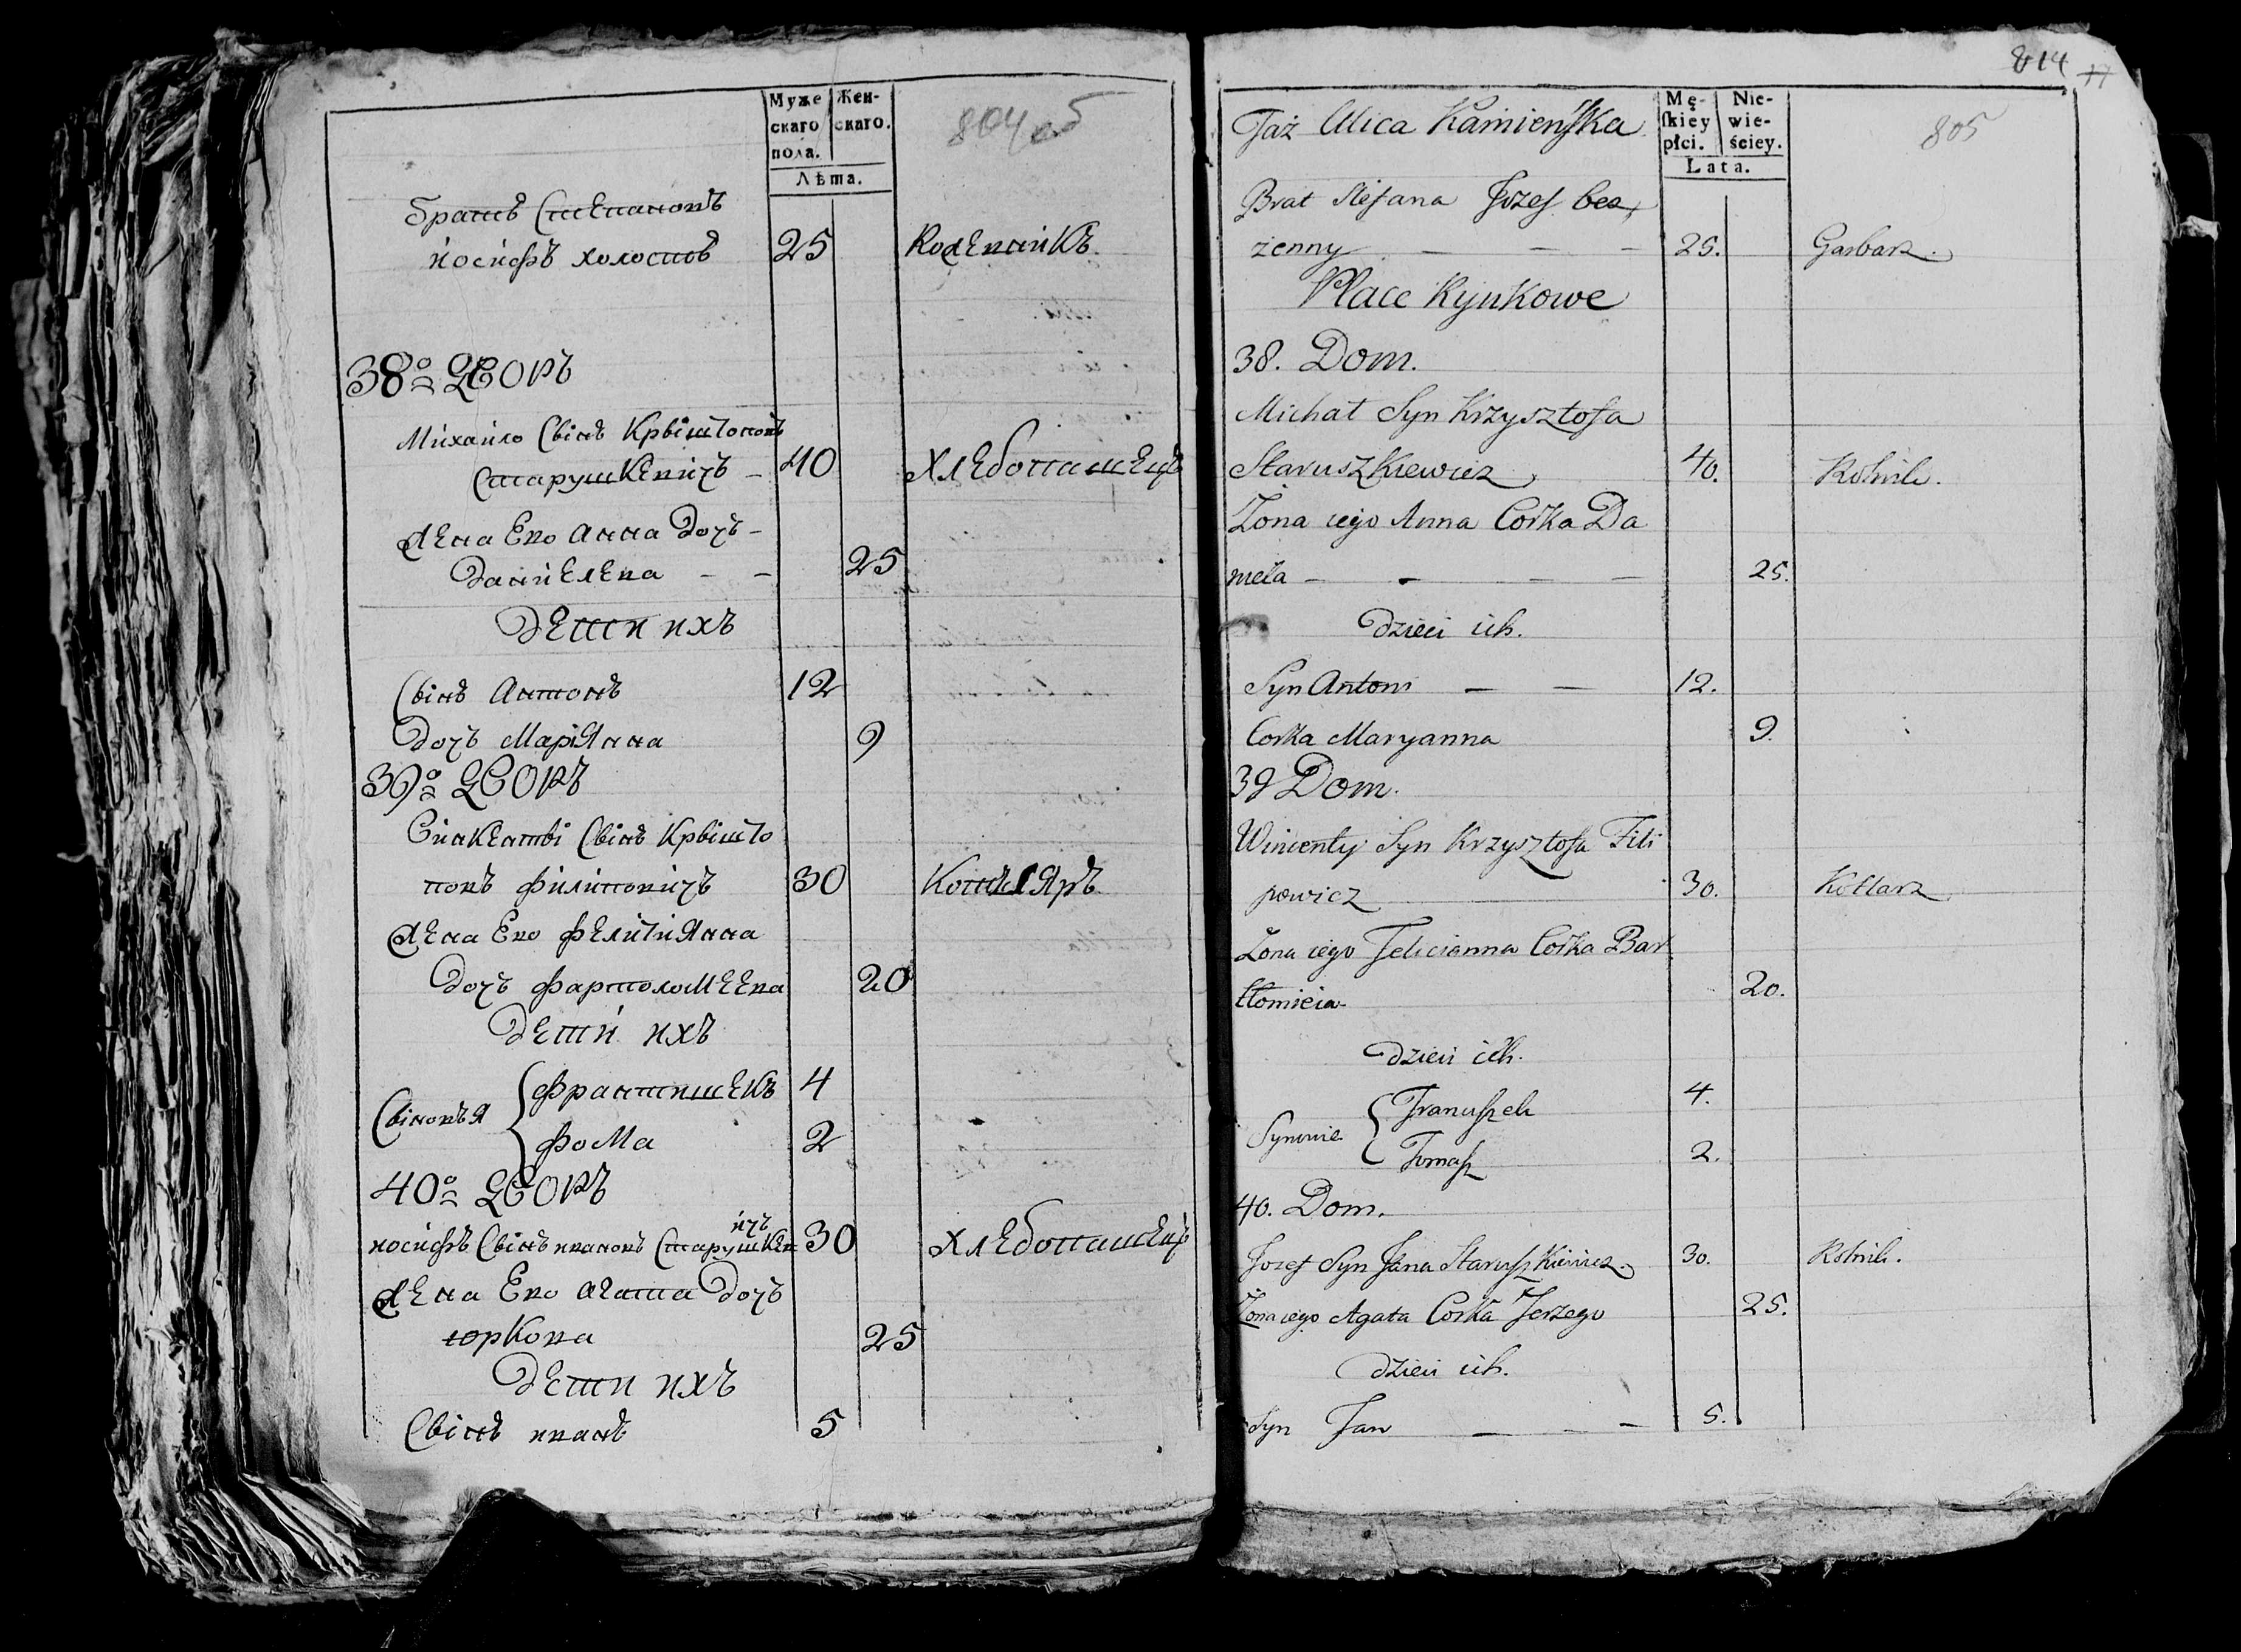 Муже
скаго
пола.
Жен-
скаго.
Лѣта.
804 об
братъ Степановъ
йосифъ холостъ 25 Кожевникъ.
38о дворъ
Михайло Свінъ Крвіштоповъ
Старушкевичъ – 40 Хлебопашецъ
Жена Его Анна Дочъ –
Данйелева – – 25
Дети ихъ
Свінъ Антонъ 12
Дочъ Маріянна 9
39о дворъ
Свінъ Крвішто
повъ Филиповичъ 30 Котляръ
Жена Его Фелиціянна
Дочъ фартоломеева 20
Дети ихъ
Свіновъя { Францишекъ 4
фома 2
40о дворъ
иосифъ Свінъ ивановъ Старушкевичъ 30 Хлебопашецъ
Жена Его Агата Дочъ
юркова 25
Дети ихъ
Свінъ иванъ 5
814 17
Taż Ulica Kamieńska
Mę-
skiey
płci.
Nie-
wie-
ściey.
Lata.
805
Brat Stefana Jozef bez,
żenny — — — 25. Garbarz.
Place Rynkowe
38. Dom.
Michał Syn Krzysztofa
Staruszkiewicz 40. Rolnik.
Żona iego Anna Corka Da
nieła — — — — 25.
dzieci ich.
Syn Antoni — — 12.
Corka Maryanna 9.
39 Dom.
Wincenty Syn Krzysztofa Fili
powicz 30. Kotlarz
Żona iego Felicianna Corka Bar
tłomieia 20.
dzieci ich.
Synowie { Franciszek 4.
Tomasz 2.
40. Dom.
Jozef Syn Jana Staruszkiewicz. 30. Rolnik.
Żona iego Agata Corka Jerzego 25.
dzieci ich.
Syn Jan — — 5.